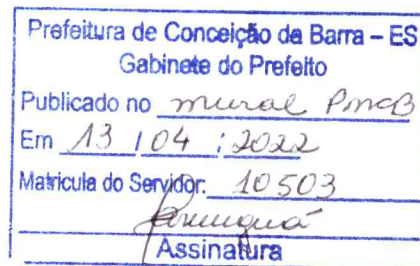 Prefeitura de Conceição da Barra – ES
Gabinete do Prefeito
Publicado no mural PMCB
Em 13 / 04 / 2022
Matricula do Servidor: 10503
Assinatura